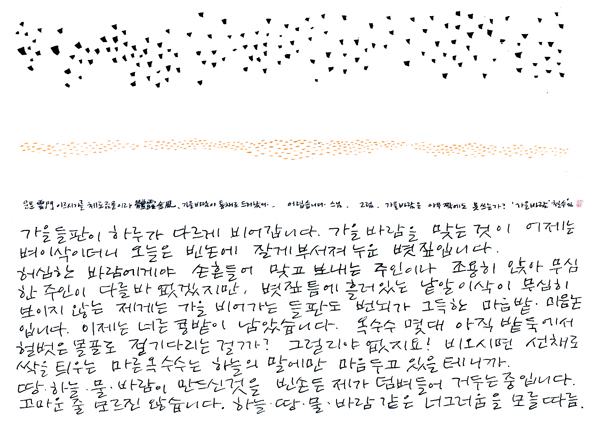 운문 雲門 이르시기를 체로금풍이라 體露金風. 가을바람이 통째로 드러났다. 어렵습니다. 스님. 그럼, 가을바람은 아무 짝에도 못쓰는가? '가을바람' 철수
가을들판이 하루가 다르게 비어갑니다. 가을 바람을 맞는 것이 어제는
벼이삭이더니 오늘은 빈논에 잘게 부서져 누운 볏짚입니다.
허심한 바람에게야 손흔들어 맞고 보내는 주인이나 조용히 앉아 무심
한 주인이 다를바 없겠지만, 볏짚 틈에 흘려있는 낱알 이삭이 무심히
보이지 않는 제게는 가을 비어가는 들판도 번뇌가 그득한 마음밭·마음논
입니다. 이제는 너른 콩밭이 남았습니다. 옥수수 몇대 아직 밭둑에서
헐벗은 몸꼴로 절기다리는 걸가? 그럴리야 없지요! 비오시면 선채로
싹을 틔우는 마른옥수수는 하늘의 말에만 마음두고 있을 테니까.
땅·하늘·물·바람이 만드신것을 빈손든 제가 덤벼들어 거두는 중입니다.
고마운 줄 모르진 않습니다. 하늘·땅·물·바람 같은 너그러움을 모를 따름.